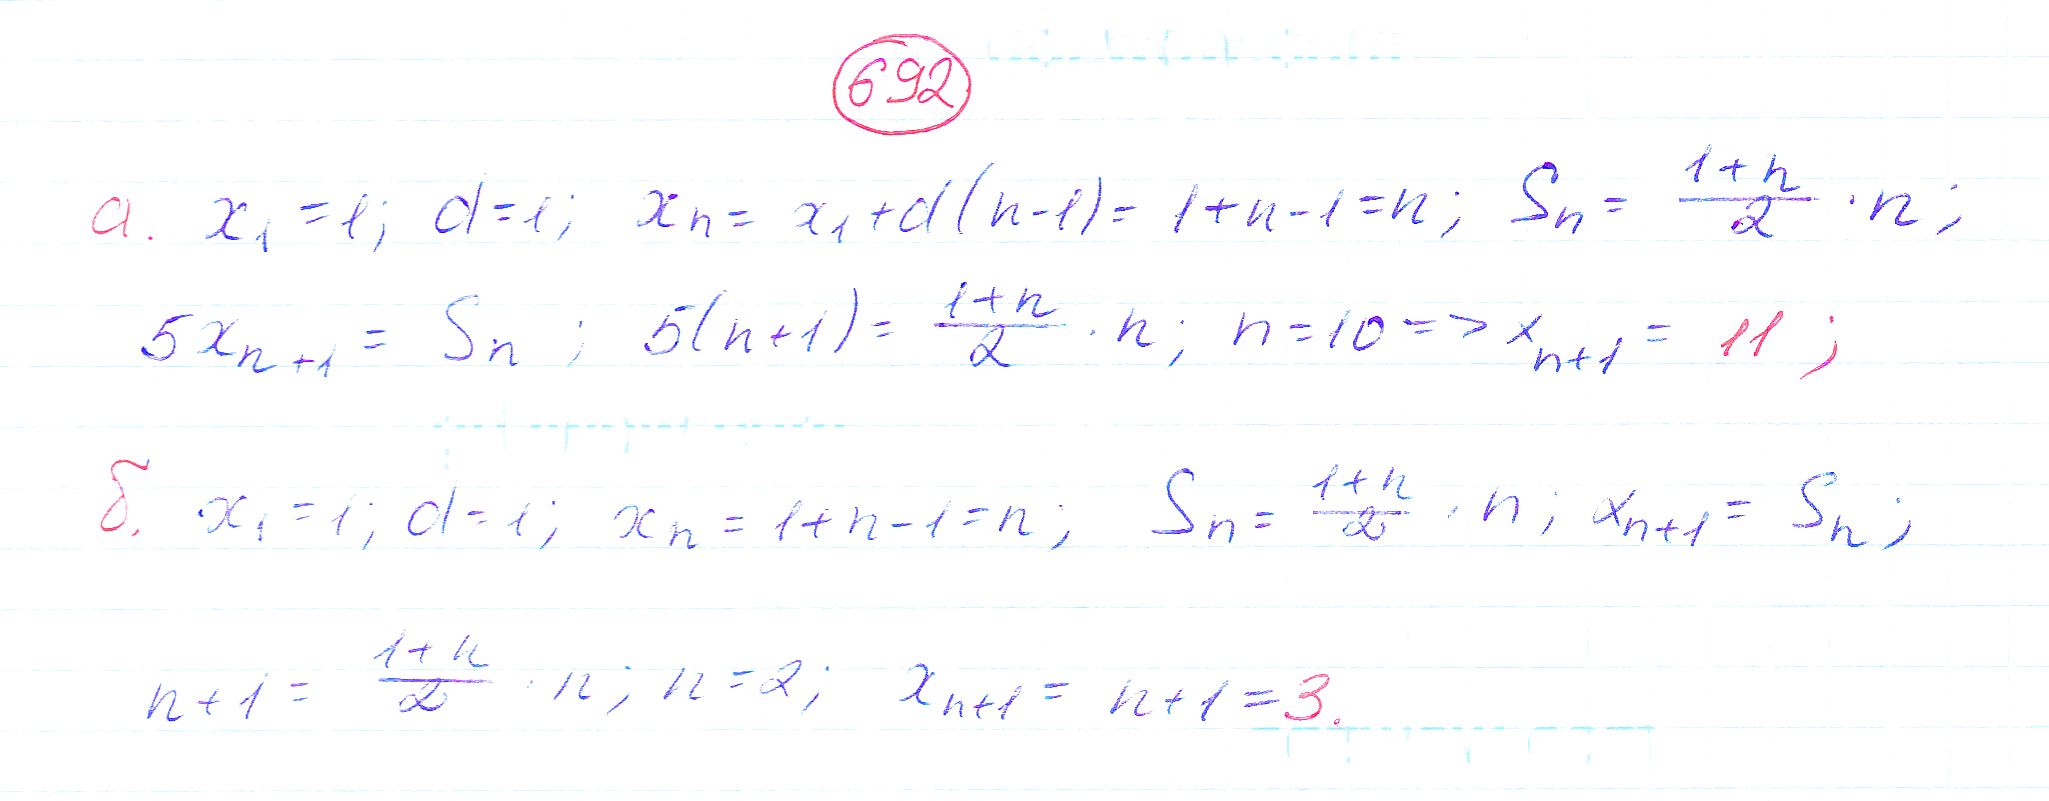 692
а. x₁ = 1; d = 1; xₙ = x₁ + d(n-1) = 1+n-1 = n; Sₙ = (1+n)/2 · n;
5xₙ₊₁ = Sₙ; 5(n+1) = (1+n)/2 · n; n = 10 => xₙ₊₁ = 11;
б. x₁ = 1; d = 1; xₙ = 1+n-1 = n; Sₙ = (1+n)/2 · n; xₙ₊₁ = Sₙ;
n+1 = (1+n)/2 · n; n = 2; xₙ₊₁ = n+1 = 3.